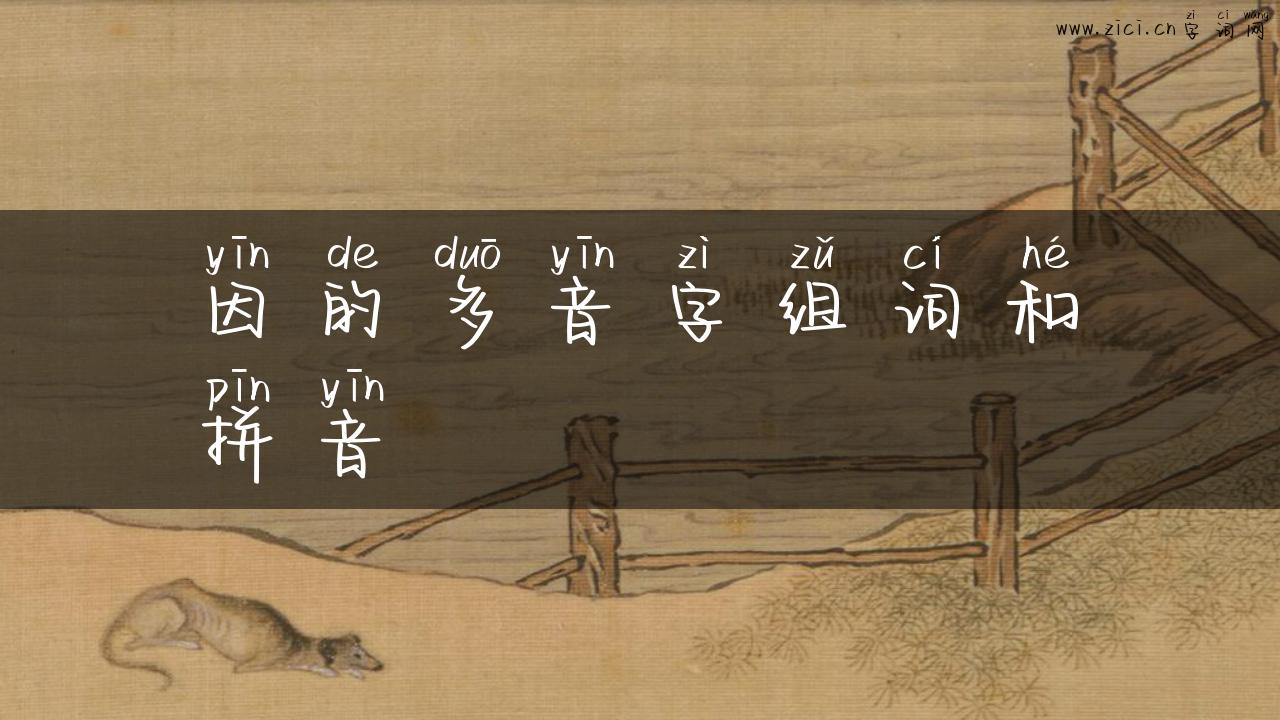 zì cí wang
www.zici.cn 字词网
yīn de duō yīn zì zǔ cí hé
因的多音字组词和
pīn yīn
拼音